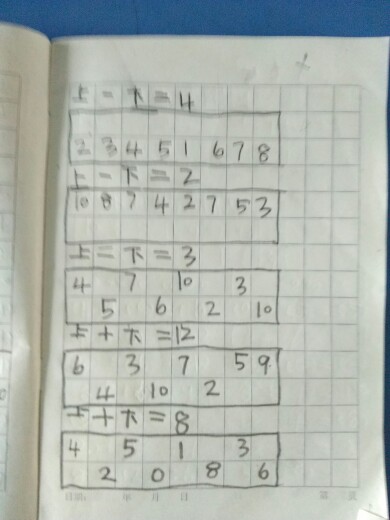 上－下＝4
2 3 4 5 1 6 7 8
上－下＝2
10 8 7 4 2 7 5 3
上－下＝3
4 7 10 3
5 6 2 10
上＋下＝12
6 3 7 5 9
4 10 2
上＋下＝8
4 5 1 3
2 0 8 6
日期: 年 月 日 第 页